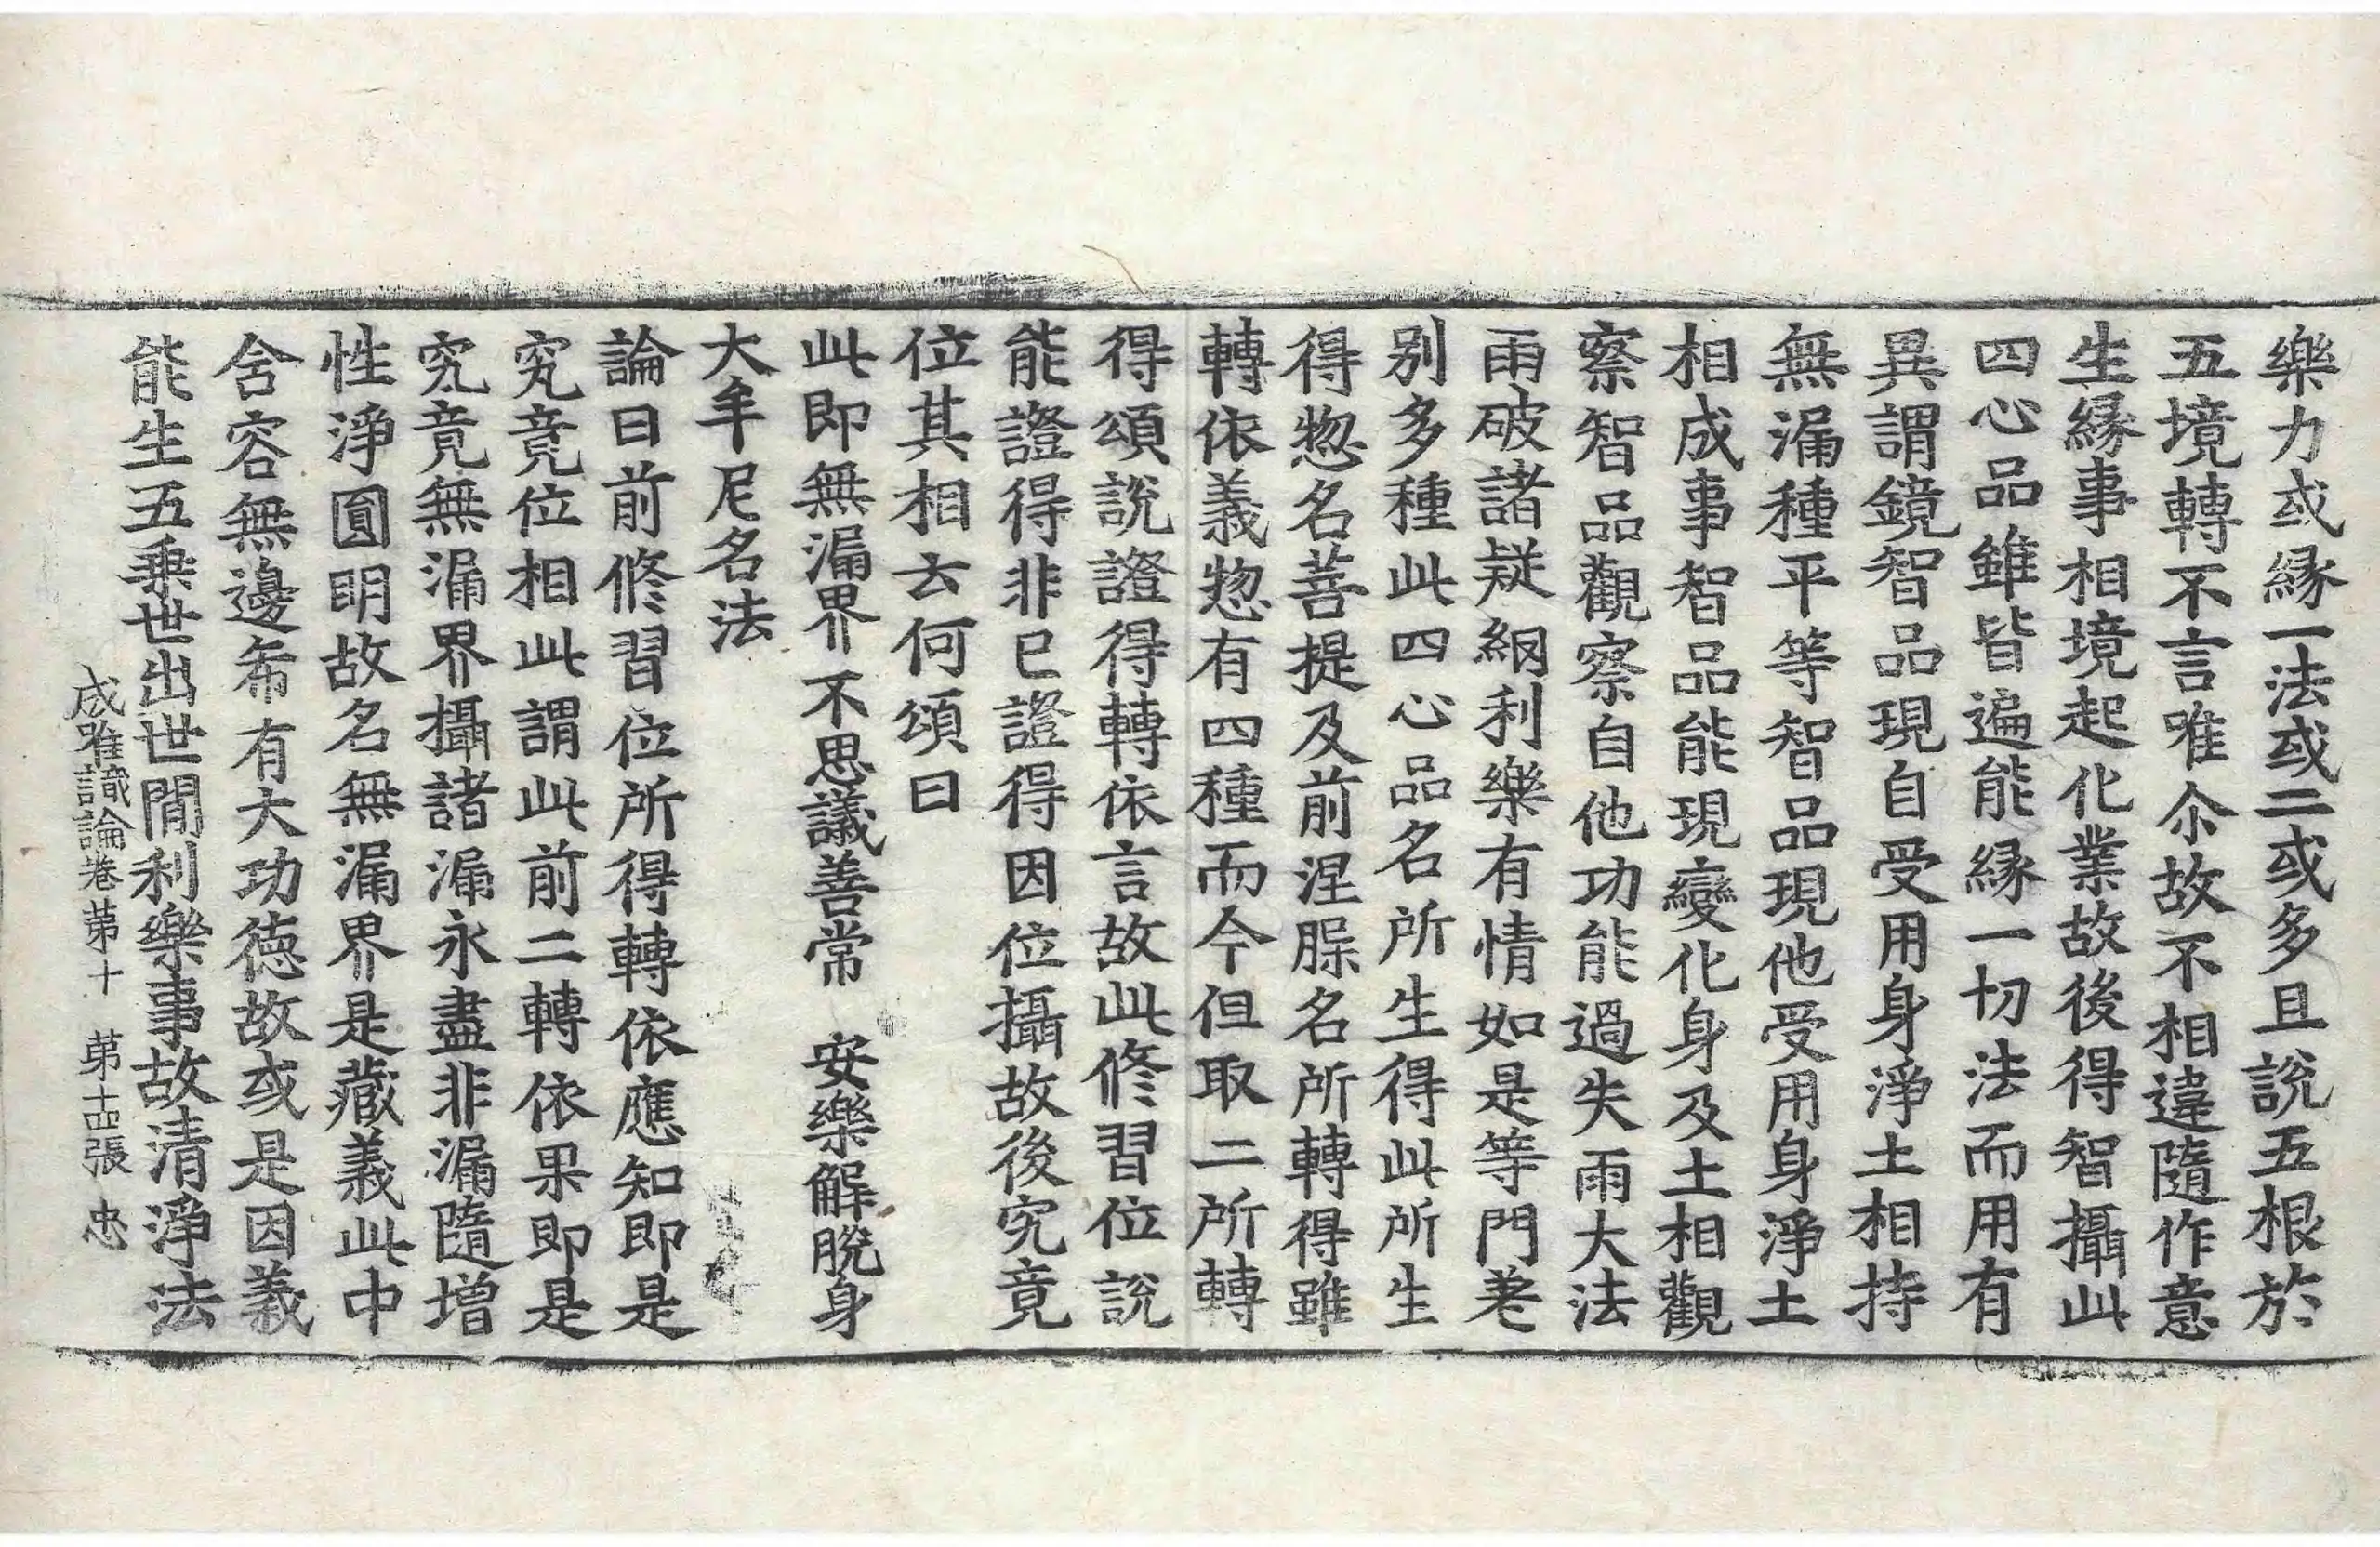 樂力或緣一法或二或多且說五根於
五境轉不言唯尒故不相違隨作意
生緣事相境起化業故後得智攝此
四心品雖皆遍能緣一切法而用有
異謂鏡智品現自受用身淨土相持
無漏種平等智品現他受用身淨土
相成事智品能現變化身及土相觀
察智品觀察自他功能過失雨大法
雨破諸疑網利樂有情如是等門差
別多種此四心品名所生得此所生
得惣名菩提及前涅槃名所轉得雖
轉依義惣有四種而今但取二所轉
得頌說證得轉依言故此修習位說
能證得非已證得因位攝故後究竟
位其相云何頌曰
此即無漏界 不思議善常 安樂解脫身
大牟尼名法
論曰前修習位所得轉依應知即是
究竟位相此謂此前二轉依果即是
究竟無漏界攝諸漏永盡非漏隨增
性淨圓明故名無漏界是藏義此中
含容無邊希有大功德故或是因義
能生五乘世出世間利樂事故清淨法
成唯識論卷第十 第十四張 忠